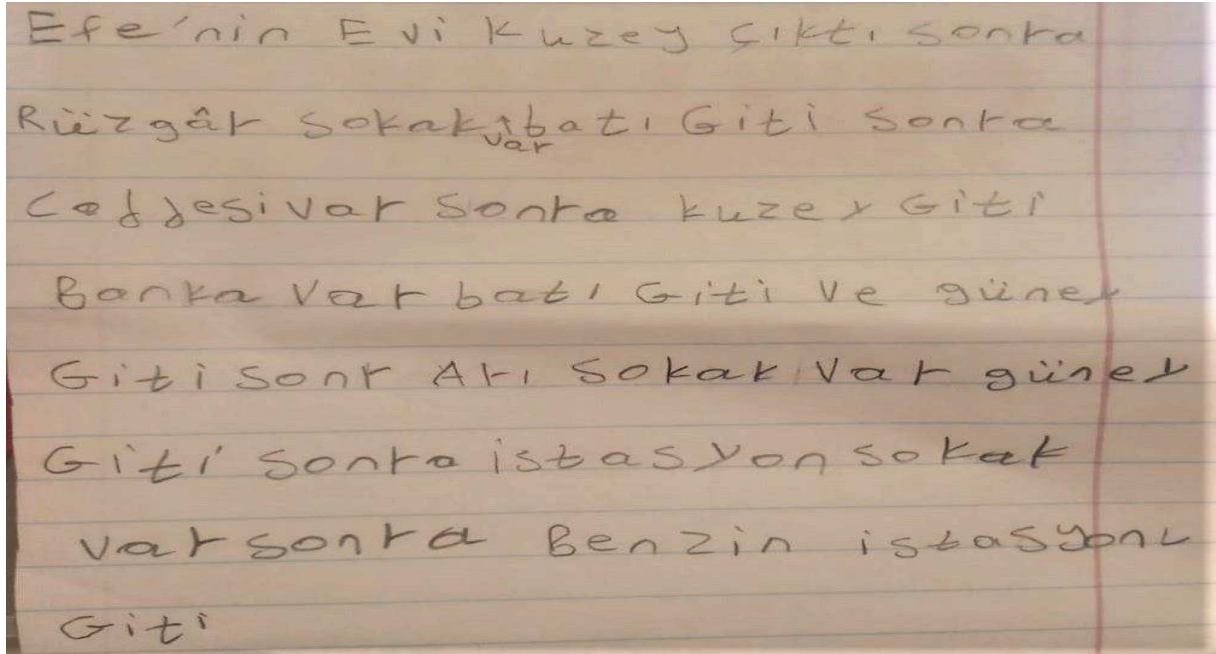 Efe'nin Evi Kuzey çıktı sonra
Rüzgâr sokak var batı Giti sonra
Caddesi var sonra kuzey Giti
Banka var batı Giti ve güney
Giti sonr Arı sokak var güney
Giti sonra istasyon sokak
var sonra Benzin istasyonu
Giti